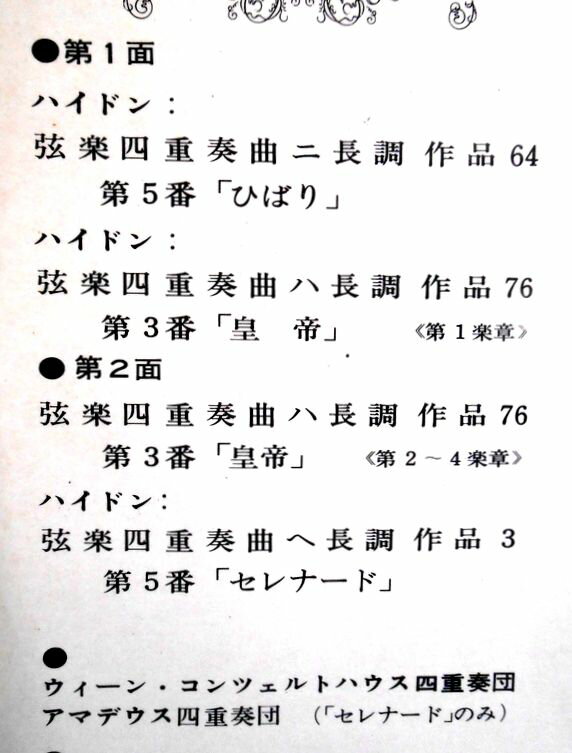 ●第1面
ハイドン:
弦楽四重奏曲ニ長調 作品64
第5番「ひばり」
ハイドン:
弦楽四重奏曲ハ長調 作品76
第3番「皇 帝」 《第1楽章》
●第2面
弦楽四重奏曲ハ長調 作品76
第3番「皇帝」 《第2~4楽章》
ハイドン:
弦楽四重奏曲ヘ長調 作品3
第5番「セレナード」
●
ウィーン・コンツェルトハウス四重奏団
アマデウス四重奏団 (「セレナード」のみ)